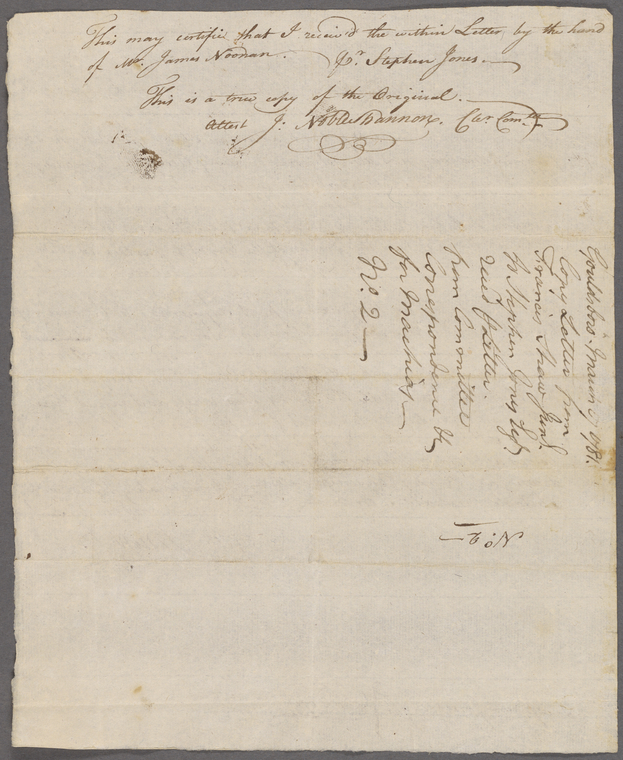 This may certifie that I receiv'd the within Letter, by the hand
of Mr. James Noonan. Pr. Stephen Jones.
This is a true copy of the Original.
Attest J: Noble Shannon. Cler. Comtt.
Gouldsboro' 1781.
Copy Letter from
Francis Shaw Junr.
to Stephen Jones Esqr
Letter.
from Committee
Correspondence &c
for Machias
No. 2
No.